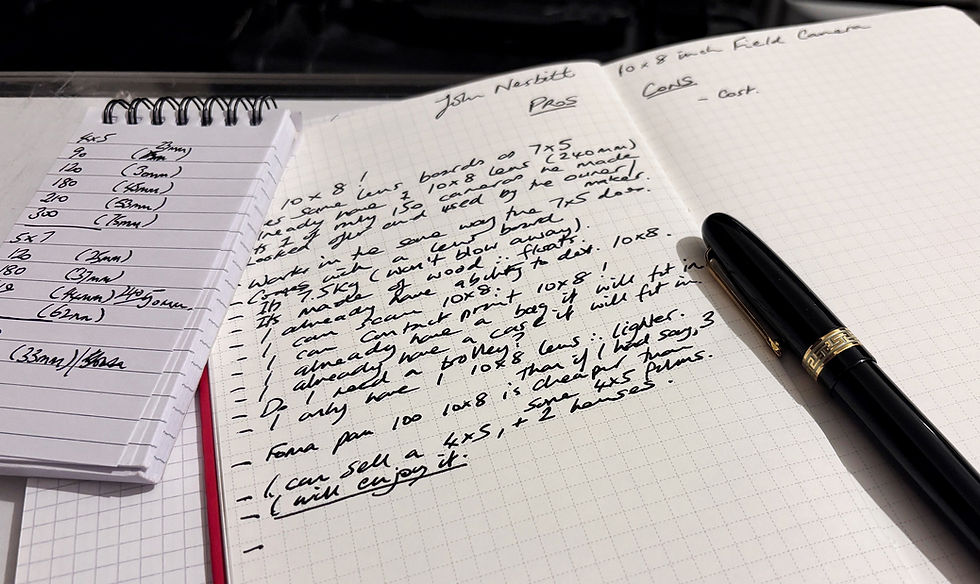 4x5
90 (23mm)
120 (30mm)
180 (45mm)
210 (53mm)
300 (75mm)
5x7
120 (25mm)
180 (37mm)
(62mm)
(33mm)/
John Nesbitt
PROS
10x8!
same lens boards as 7x5
already have 2 10x8 lens (240mm)
1 of only 150 cameras he made
looked after and used by the owner/
maker.
- Works in the same way the 7x5 does.
- Comes with a lens board
- Its 7.5kg (won't blow away).
- Its made of wood ∴ floats.
- I already have ability to dev. 10x8.
- I can scan 10x8.
- I can contact print 10x8!
- I already have a bag it will fit in
- I already have a case it will fit in
- Do I need a trolley?
- I only have 1 10x8 lens ∴ lighter.
than if I had say, 3
- Foma pan 100 10x8 is cheaper than
some 4x5 films.
- I can sell a 4x5, + 2 houses.
- I will enjoy it.
-
10x8 inch Field Camera
Cons
- Cost.